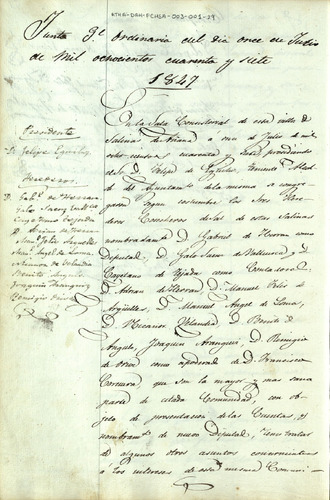 ATHA-DAH-FCHSA-003-001-29
Junta Gl. ordinaria del dia once de Julio
de Mil ochocientos cuarenta y siete
1847
Presidente
D. Felipe
Herederos
D. Gabl. de Herran
Galo Saenz
Cayetano Tejada
D. Adrian de Herran
Man. Felix Arguelles
Man. Angel de Loma
Nicanor de Urbina
Benito Angulo
Joaquin Aranguiz
Remigio
En la Sala Consistorial de esta villa de
Salinas de Añana a once de Julio de mil
ochocientos cuarenta y siete presidiendo
el Sr. D. Felipe de Teniente Alcalde
del Ayuntamto. de la misma se congre-
garon segun costumbre los Sres. Here-
deros Caseros de Sal de estas Salinas
nombradamte. D. Gabriel de Herran como
Diputado, D. Galo Saenz de Valluerca y D.
Cayetano de Tejada como Contadores,
D. Adrian de Herran, D. Manuel Felix de
Argüelles, D. Manuel Angel de Loma,
D. Nicanor D. Benito de
Angulo, Joaquin Aranguiz, D. Remigio
de como apoderado de D. Francisca
que son la mayor y mas sana
parte de citada Comunidad, con ob-
jeto de presentacion de las Cuentas y
nombramto. de nuevo Diputado, y en tratar
de algunos otros asuntos concernientes
á los intereses de esta misma Comuni-